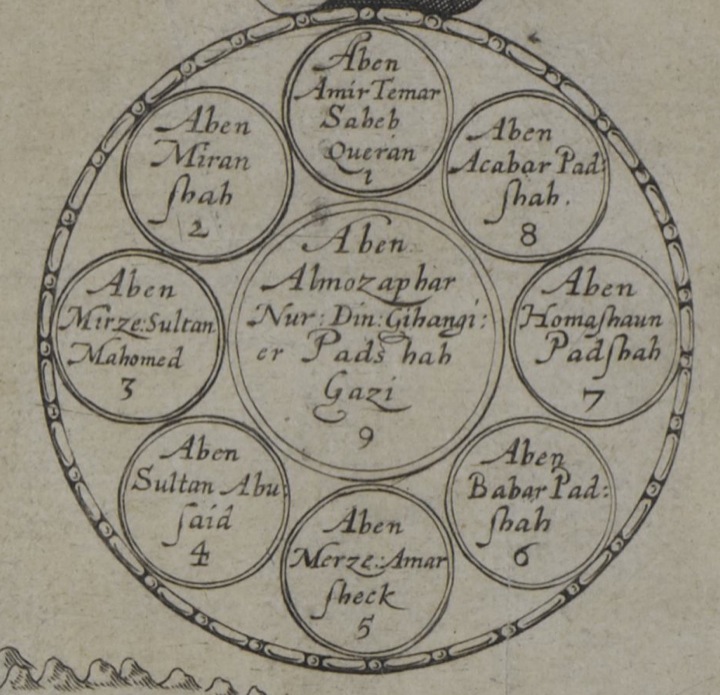 Aben
Amir Temar
Saheb
Queran
1
Aben
Miran
ſhah
2
Aben
Mirze: Sultan
Mahomed
3
Aben
Sultan Abu:
ſaid
4
Aben
Merze: Amar
ſheck
5
Aben
Babar Pad:
ſhah
6
Aben
Homaſhaun
Padſhah
7
Aben
Acabar Pad:
ſhah.
8
Aben
Almozaphar
Nur: Din: Gihangi:
er Pads hah
Gazi
9